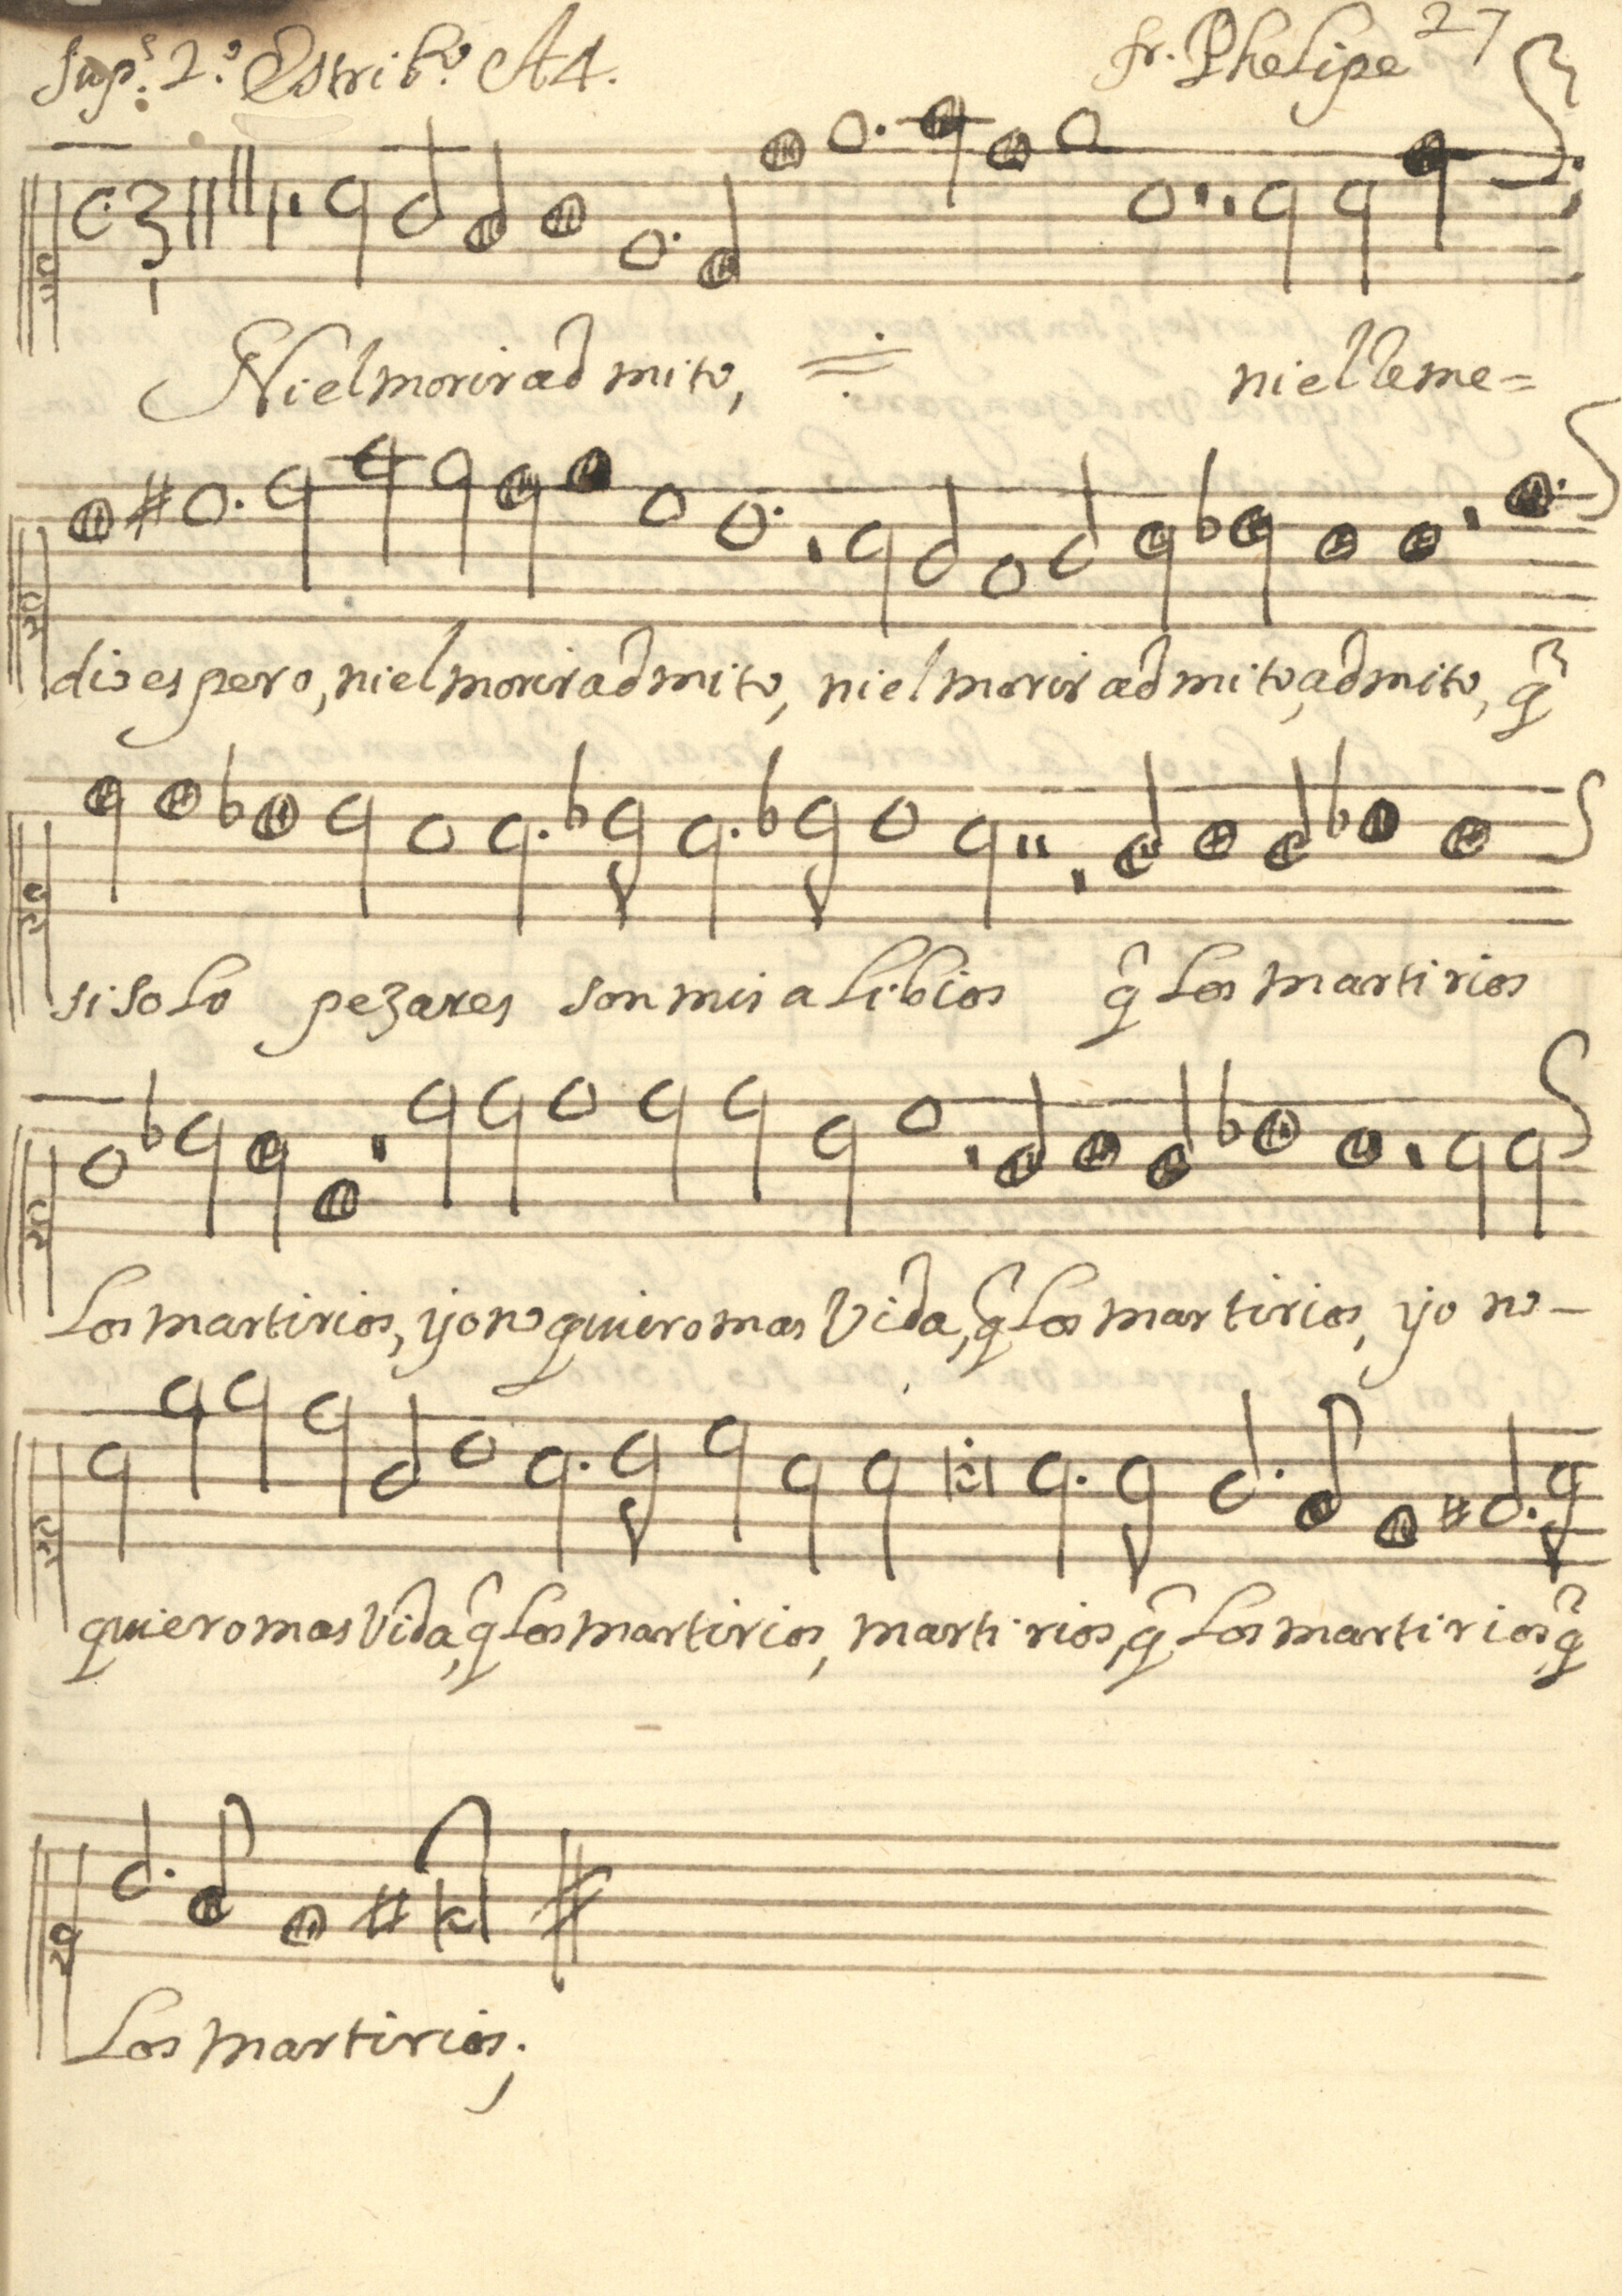 Sup.s 2.º Estrib.º A4. fr. Phelipe 27
Ni el morir admito, niel leme=
dio espero, niel morir admito, niel morir admito, admito, q̃
si solo pezares son mis alibios q̃ los martirios
Los martirios, yo no quiero mas Vida, q̃ los martirios, yo no-
quiero mas Vida, q̃ los martirios, martirios, q̃ los martirios, q̃
Los martirios;